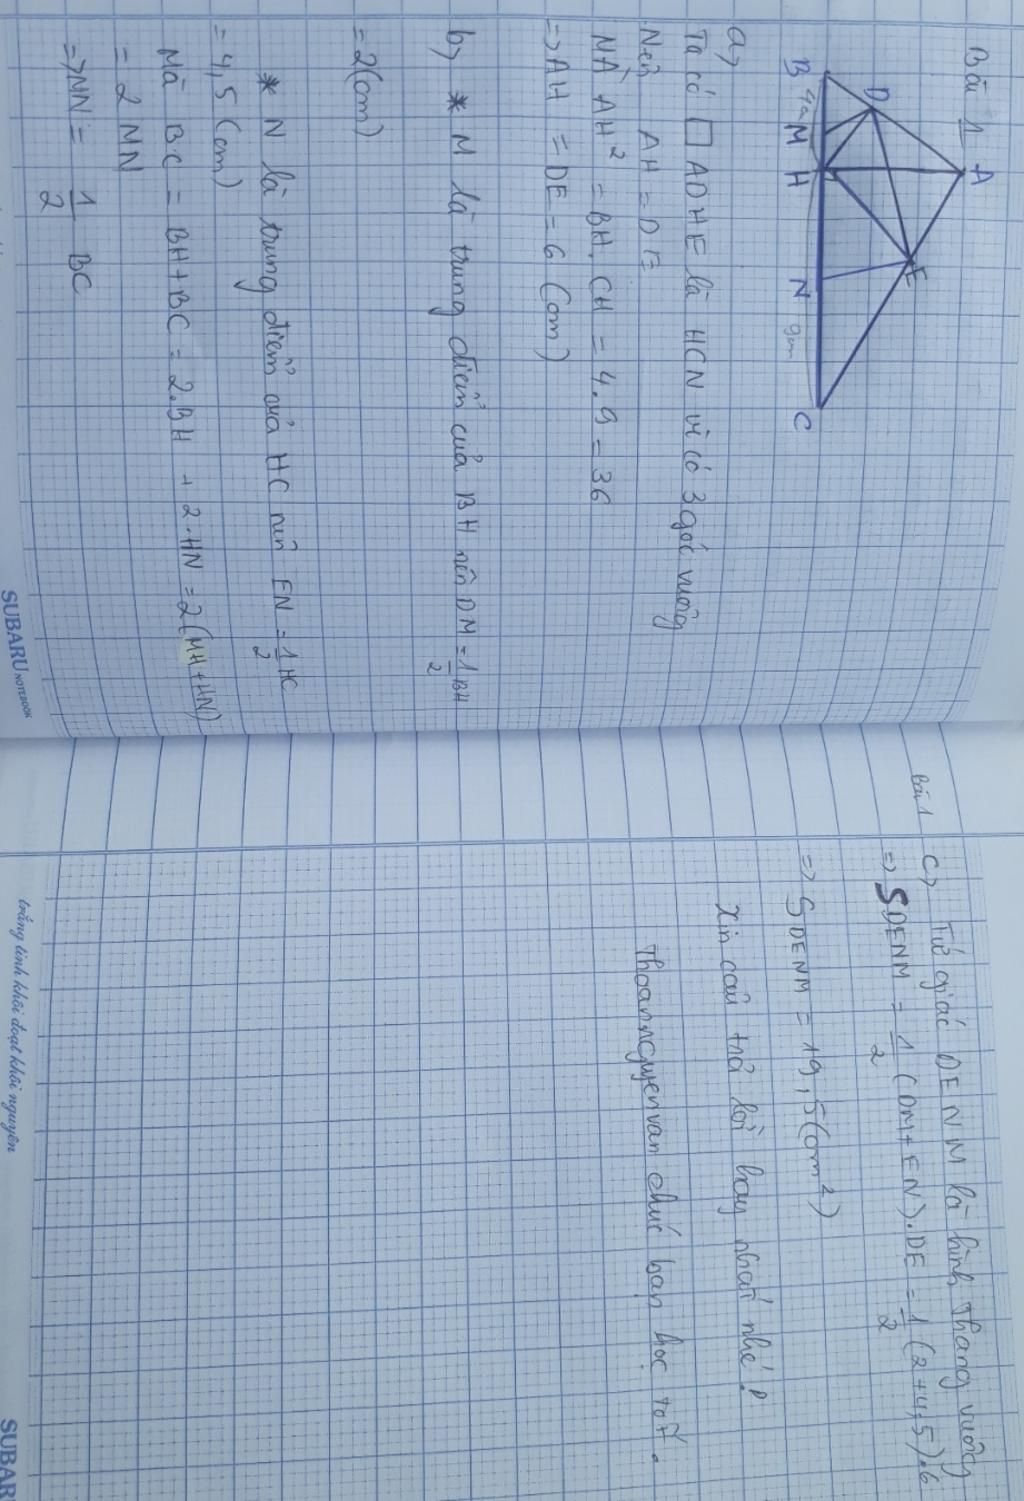 Bài 1
A
D
E
B 4cm M H N 9cm C
a)
Ta có □ ADHE là HCN vì có 3 góc vuông
Nên AH = DE
MÀ AH² = BH. CH = 4.9 = 36
=> AH = DE = 6 (cm)
b) * M là trung điểm của BH nên DM = 1/2 BH
= 2 (cm)
* N là trung điểm của HC nên EN = 1/2 HC
= 4,5 (cm)
Mà BC = BH + BC = 2.BH + 2.HN = 2(MH+HN)
= 2 MN
=> MN = 1/2 BC
SUBARU NOTEBOOK
Bài 1
c) Tứ giác DENM là hình thang vuông
=> SDENM = 1/2 (DM + EN).DE = 1/2 (2+4,5).6
=> SDENM = 19,5 (cm²)
Xin câu trả lời hay nhất nhé!
Thoannguyenvan chúc bạn học tốt.
trắng tinh khôi đoạt khôi nguyên
SUBAR